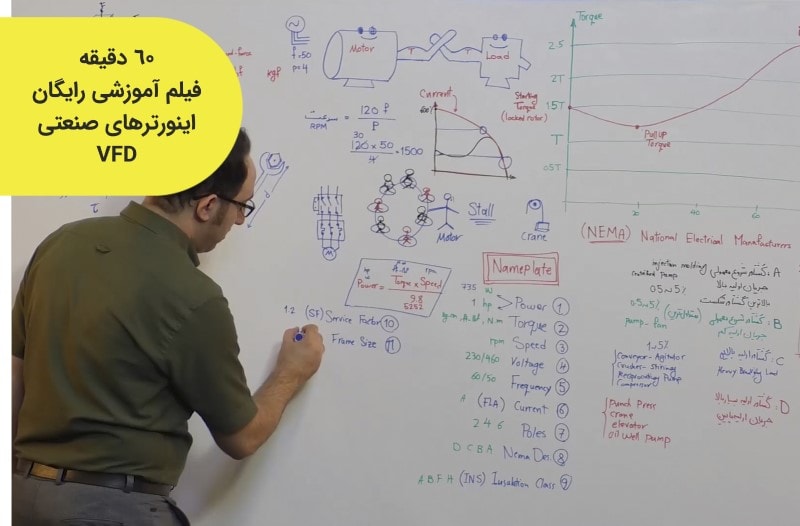 ۶۰ دقیقه
فیلم آموزشی رایگان
اینورترهای صنعتی
VFD
kgf
f=50
p=4
Motor
T
T
Load
Current
600%
Starting
Torque
(locked rotor)
Torque
2.5
2T
1.5T
T
0.5T
Pull up
Torque
30
40
60
سرعت
RPM
= 120 f
P
30
120 × 50
4
= 1500
d
M
Motor
Stall
Crane
(NEMA) National Electrical Manufacturers
hp
rpm
Power = Torque × Speed
9.8
5252
Nameplate
735 W
1 hp
Power 1
Torque 2
rpm Speed 3
230/460 Voltage 4
60/50 Frequency 5
A (FLA) Current 6
2 4 6 Poles 7
D C B A Nema Des. 8
A B F H (INS) Insulation Class 9
1.2 (SF) Service Factor 10
Frame Size 11
injection molding
pump
A : گشتاور شروع معمولی
جریان اولیه بالا
0.5~5%
B : گشتاور شروع معمولی
0.5~5%
pump - fan
1~5%
Conveyor - Agitator
Crusher - Stirring
Reciprocating Pump
Compressor
C : گشتاور اولیه بالا
Heavy Breaking Load
Punch Press
Crane
elevator
oil well pump
D : گشتاور اولیه بسیار بالا
جریان اولیه پایین